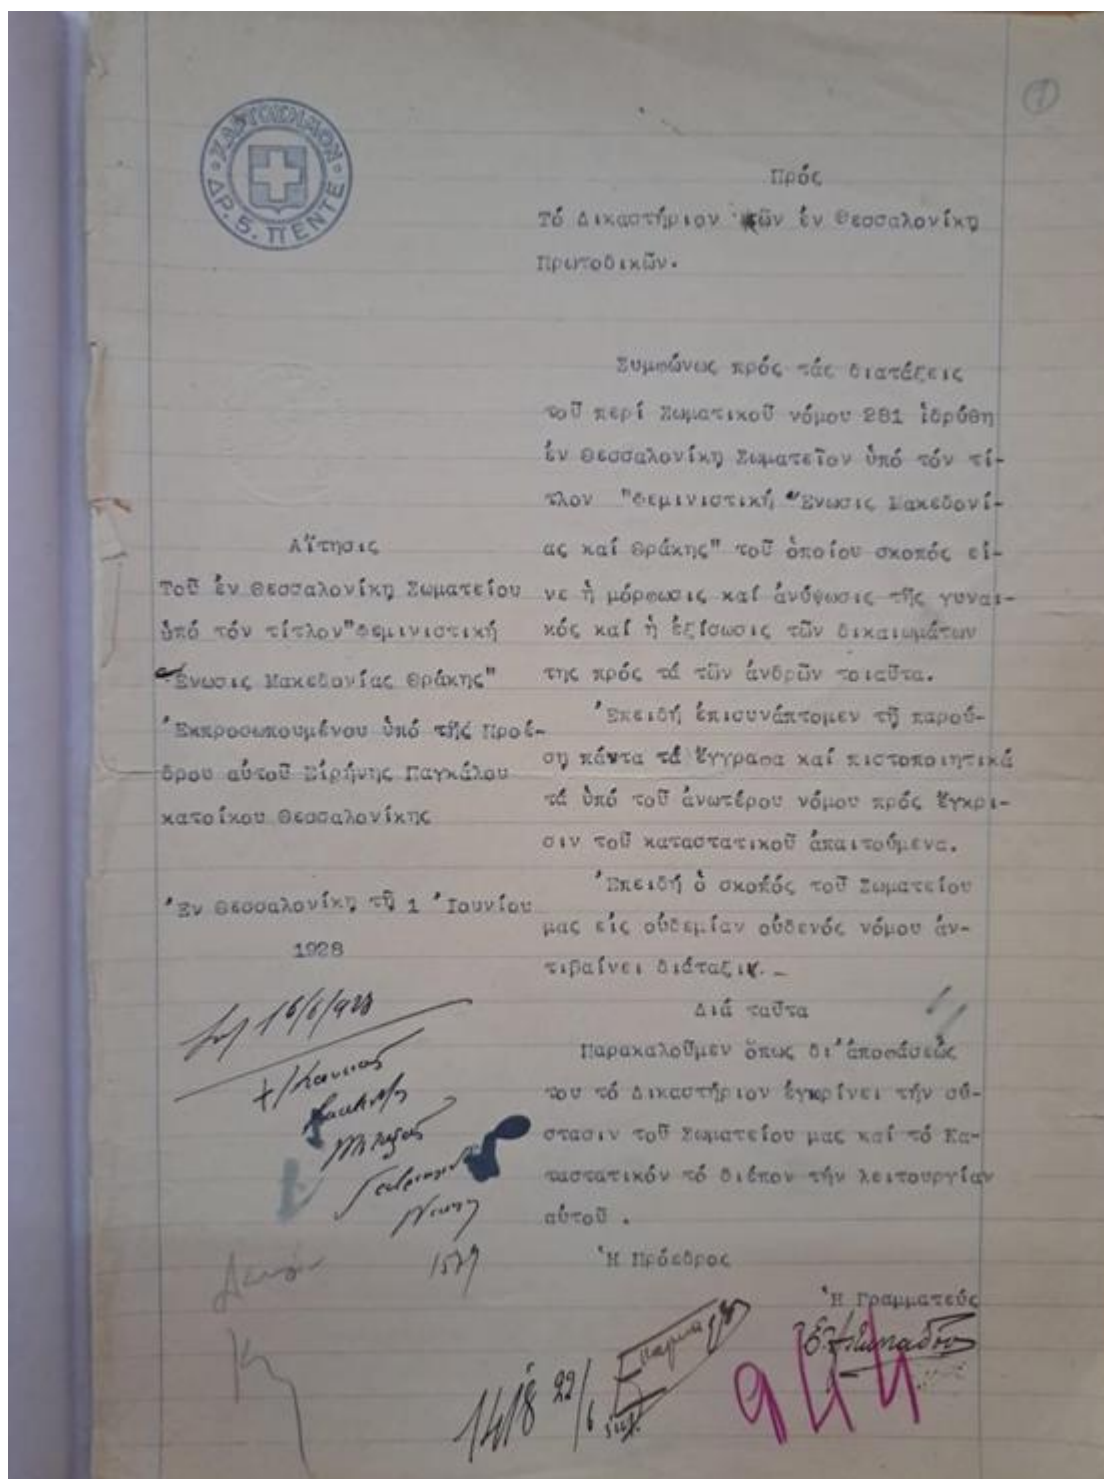 ΧΑΡΤΟΣΗΜΟΝ
ΔΡ. 5. ΠΕΝΤΕ
1
Πρός
Τό Δικαστήριον τῶν ἐν Θεσσαλονίκῃ
Πρωτοδικῶν.
Αἴτησις
Τοῦ ἐν Θεσσαλονίκῃ Σωματείου
ὑπό τόν τίτλον"Φεμινιστική
Ἕνωσις Μακεδονίας Θράκης"
Ἐκπροσωπουμένου ὑπό τῆς Προέ-
δρου αὐτοῦ Εἰρήνης Παγκάλου
κατοίκου Θεσσαλονίκης
Ἐν Θεσσαλονίκῃ τῇ 1 Ἰουνίου
1928
Συμφώνως πρός τάς διατάξεις
τοῦ περί Σωματικοῦ νόμου 281 ἱδρύθη
ἐν Θεσσαλονίκῃ Σωματεῖον ὑπό τόν τί-
τλον "Φεμινιστική Ἕνωσις Μακεδονί-
ας καί Θράκης" τοῦ ὁποίου σκοπός εἶ-
νε ἡ μόρφωσις καί ἀνύψωσις τῆς γυναι-
κός καί ἡ ἐξίσωσις τῶν δικαιωμάτων
της πρός τά τῶν ἀνδρῶν τοιαῦτα.
Ἐπειδή ἐπισυνάπτομεν τῇ παρού-
σῃ πάντα τά ἔγγραφα καί πιστοποιητικά
τά ὑπό τοῦ ἀνωτέρου νόμου πρός ἔγκρι-
σιν τοῦ καταστατικοῦ ἀπαιτούμενα.
Ἐπειδή ὁ σκοπός τοῦ Σωματείου
μας εἰς οὐδεμίαν οὐδενός νόμου ἀν-
τιβαίνει διάταξιν.-
Διά ταῦτα
Παρακαλοῦμεν ὅπως δι'ἀποφάσεώς
του τό Δικαστήριον ἐγκρίνει τήν σύ-
στασιν τοῦ Σωματείου μας καί τό Κα-
ταστατικόν τό διέπον τήν λειτουργίαν
αὐτοῦ .
Ἡ Πρόεδρος
Ἡ Γραμματεύς
16/6/928
1418 22/6
944